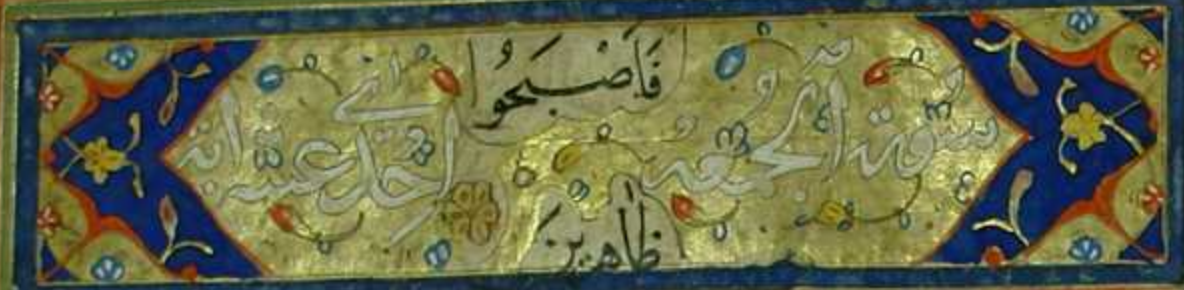 فَاَصْبَحُو
سورة الجمعه احدى عشر اية
ظاهرين